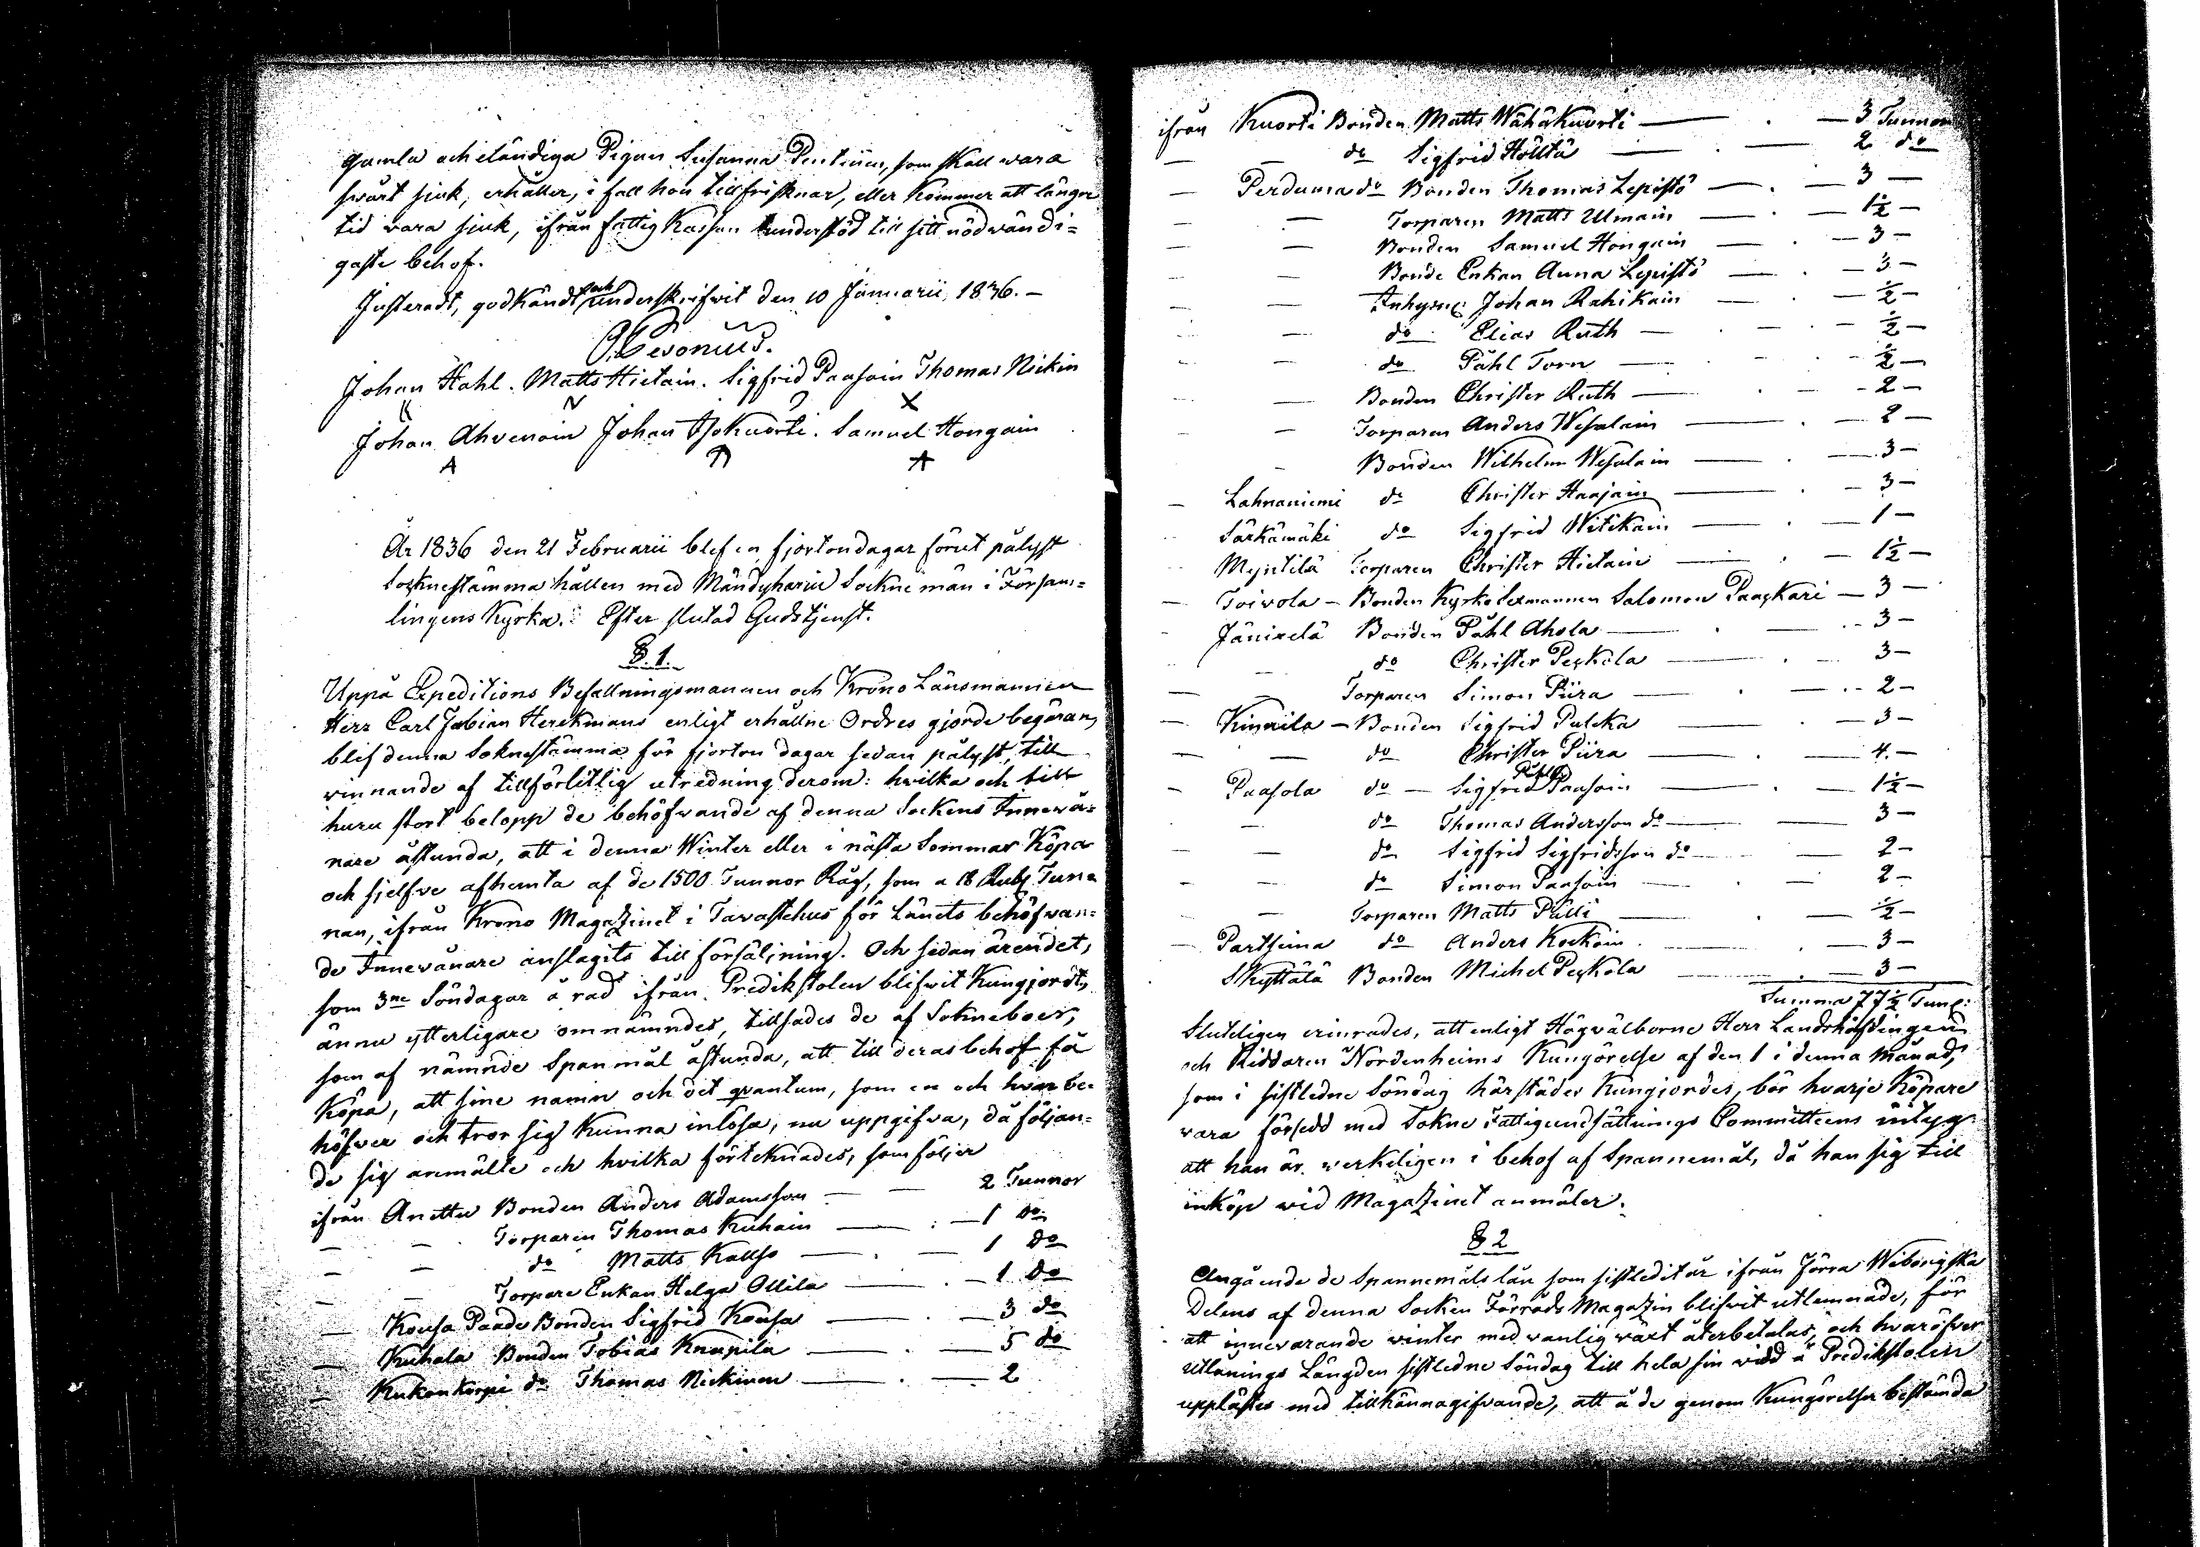 gamla och eländiga Pigan Susanna Pentiinen, som skall wara
swårt sjuk, erhåller, i fall hon tillfrisknar, eller kommer att längre
tid vara sjuk, ifrån fattig Kassan understöd till sitt nödvändi=
gaste behof.
Justeradt, godkändt och underskrifwit den 10 Januarii, 1836. –
Cesonius.
Johan Hahl. Matts Hietain. Sigfrid Paasoin Thomas Nickin
Johan Ahvenain Johan Isokuorti. Samuel Hongain
År 1836 den 21 Februarii blef en fjorton dagar förut pålyst
Socknestämma hållen med Mändyharju Sockne män i Försam=
lingens Kyrka. Efter slutad Gudstjenst.
§. 1.
Uppå Expeditions Befallningsmannen och Krono Länsmannen
Herr Carl Fabian Herckmans enligt erhållne Ordres gjorde begäran,
blef denna Soknestämma för fjorton dagar sedan pålyst, till
vinnande af tillförlitlig utredning derom: hvilka och till
huru stort belopp de behöfwande af denna Sockens Innewå=
nare åstunda, att i denna Winter eller i nästa Sommar Köpa
och sjelfve afhemta af de 1500 Tunnor Råg, som a 18 Rub. Tun=
nan, ifrån Krono Magazinet i Tavastehus för Länets behöfvan=
de Innevånare anslagits till försäljning. Och sedan ärendet,
som 3ne Söndagar å rad ifrån Predikstolen blifwit Kungjordt,
ännu ytterligare omnämndes, tillsades de af Sokneboer,
som af nämnde Spanmål åstunda, att till deras behof få
Köpa, att sine namn och det qvantum, som en och hvar be=
höfver och tror sig kunna inlösa, nu uppgifva, då följan=
de sig anmälte och hvilka förteknades, som följer
ifrån Anettu Bonden Anders Adamsson — — 2 Tunnor
— — Torparen Thomas Kuhain — . — 1 do
— — do Matts Kallio — . — 1 do
— — Torpare Enkan Helga Ollila — . — 1 do
— Kousa Paade Bonden Sigfrid Kousa — . — 3 do
— Kuhala Bonden Tobias Knaapila — . — 5 do
— Kukonkorpi do Thomas Nickinen — . — 2
ifrån Kuorti Bonden Matts Wähäkuorti — . — 3 Tunnor
— — do Sigfrid Hölttä — . — 2 do
— Perduma do Bonden Thomas Lepistö — . — 3 —
— — Torparen Matts Ulmain — . — 1½ —
— — Bonden Samuel Hongain — . — 3 —
— — Bonde Enkan Anna Lepistö — . — 3 —
— — Inhyses Johan Rahikain — . — ½ —
— — do Elias Ruth — . — ½ —
— — do Påhl Torn — . — ½ —
— — Bonden Christer Ruth — . — 2 —
— — Torparen Anders Wesalain — . — 2 —
— Bonden Wilhelm Wesalain — . — 3 —
— Lahnaniemi do Christer Haajain — . — 3 —
Särkämäki do Sigfrid Witikain — . — 1 —
Myntilä Torparen Christer Hietain — . — 1½ —
— Toivola – Bonden Kyrkolexmannen Salomon Paaskari — 3 —
— Jänixelä Bonden Påhl Ahola — . — 3 —
— do Christer Peskola — . — 3 —
— — Torparen Simon Piira — . — 2 —
— Kinnila – Bonden Sigfrid Pulcka — . — 3 —
— — do Christer Piira — . — 4. —
— Paasola do — Sigfrid Påhls. Paasoin — . — 1½ —
— do Thomas Andersson do — — 3 —
— — do Sigfrid Sigfridsson do — — 2 —
— — do Simon Paasoin — . — 2 —
— Torparen Matts Pulli — . — ½ —
— Partsima do Anders Kockoin — . — 3 —
Skyttälä Bonden Michel Peskola — . — 3 —
Summa 77½ Tun:
Sluteligen erinrades, att enligt Högvälborne Herr Landshöfdingens
och Riddaren Nordenheims Kungörelse af den 1 i denna Månad,
som i sistledne Söndag härstädes Kungjordes, bör hvarje Köpare
vara försedd med Sokne Fattigundsättnings Committeens intyg
att han är werkeligen i behof af Spannemål, då han sig till
inköp wid Magazinet anmäler.
§ 2
Angående de Spannemåls lån som sistledit år ifrån Förra Wiborgska
Delens af denna Socken Förråds Magazin blifwit utlemnade, för
att innevarande winter med vanlig växt återbetalas, och hvaröfver
Utlånings Längden sistledne Söndag till hela sin vidd å Predikstolen
upplästes med tillkännagifvande, att å de genom Kungörelser bestämda